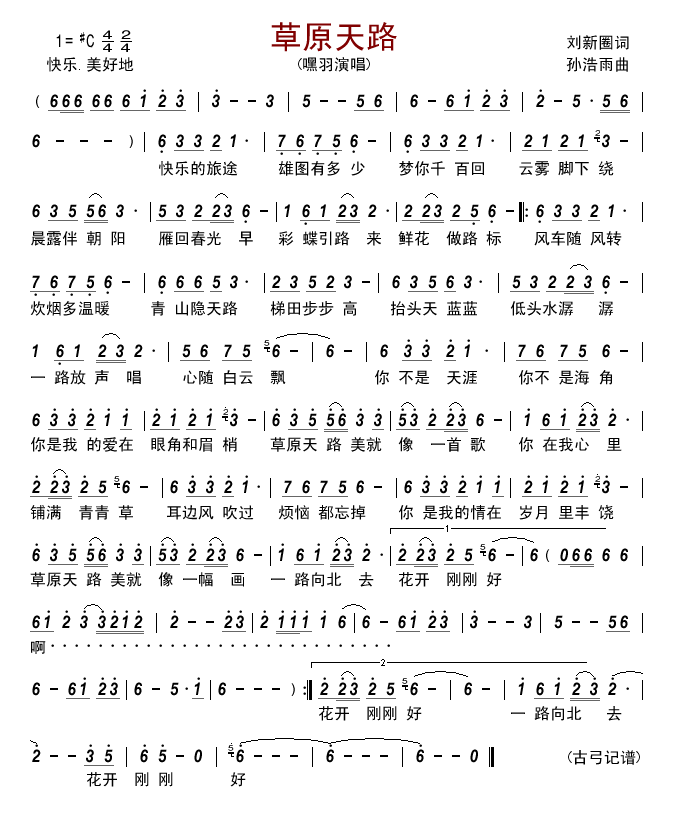 草原天路
1=♯C 4/4 2/4
刘新圈词
快乐.美好地
(嘿羽演唱)
孙浩雨曲
( 666 66 61 23 | 3 - - 3 | 5 - - 56 | 6 - 61 23 | 2 - 5· 56 |
6 - - - ) | 6 3 3 2 1· | 7 6 7 5 6 - | 6 3 3 2 1· | 21 21 23 - |
快乐的旅途 雄图有多 少 梦你千 百回 云雾 脚下 绕
6 3 5 56 3· | 53 2 23 6 - | 1 61 23 2· | 2 23 2 5 6 - |: 6 3 3 2 1· |
晨露伴 朝 阳 雁回春光 早 彩 蝶引路 来 鲜花 做路 标 风车随 风转
7 6 7 5 6 - | 6 6 6 5 3· | 23 52 3· | 6 3 5 6 3 | 53 2 23 6 - |
炊烟多温暖 青 山隐天路 梯田步步 高 抬头天 蓝蓝 低头水潺 潺
1 61 23 2· | 56 75 56 - | 6 - | 6 33 21· | 76 75 6 - |
一 路放 声 唱 心随 白云 飘 你 不是 天涯 你不 是海 角
6 3 3 2 1 1 | 21 21 23 - | 6 3 5 56 3 3 | 53 2 23 6 - | 1 61 23 2· |
你是我 的爱在 眼角和眉 梢 草原天 路 美就 像 一首 歌 你 在我心 里
2 23 2 5 56 - | 6 3 3 2 1· | 76 75 6 - | 6 3 3 2 1 1 | 21 21 23 - |
铺满 青青 草 耳边风 吹过 烦恼 都忘掉 你 是我的情在 岁月 里丰 饶
1
6 3 5 56 3 3 | 53 2 23 6 - | 1 61 23 2· | 2 23 2 5 56 - | 6 ( 066 6 6 |
草原天 路 美就 像 一幅 画 一 路向北 去 花开 刚刚 好
61 2 3 3212 | 2 - - 23 | 2 111 1 6 | 6 - 61 23 | 3 - - 3 | 5 - - 56 |
啊·····························
2
6 - 61 23 | 6 - 5· 1 | 6 - - - ) :| 2 23 2 5 56 - | 6 - | 1 61 23 2· |
花开 刚刚 好 一 路向北 去
2 - - 3 5 | 6 5 - 0 | 56 - - - | 6 - - - | 6 - - 0 |
(古弓记谱)
花开 刚 刚 好